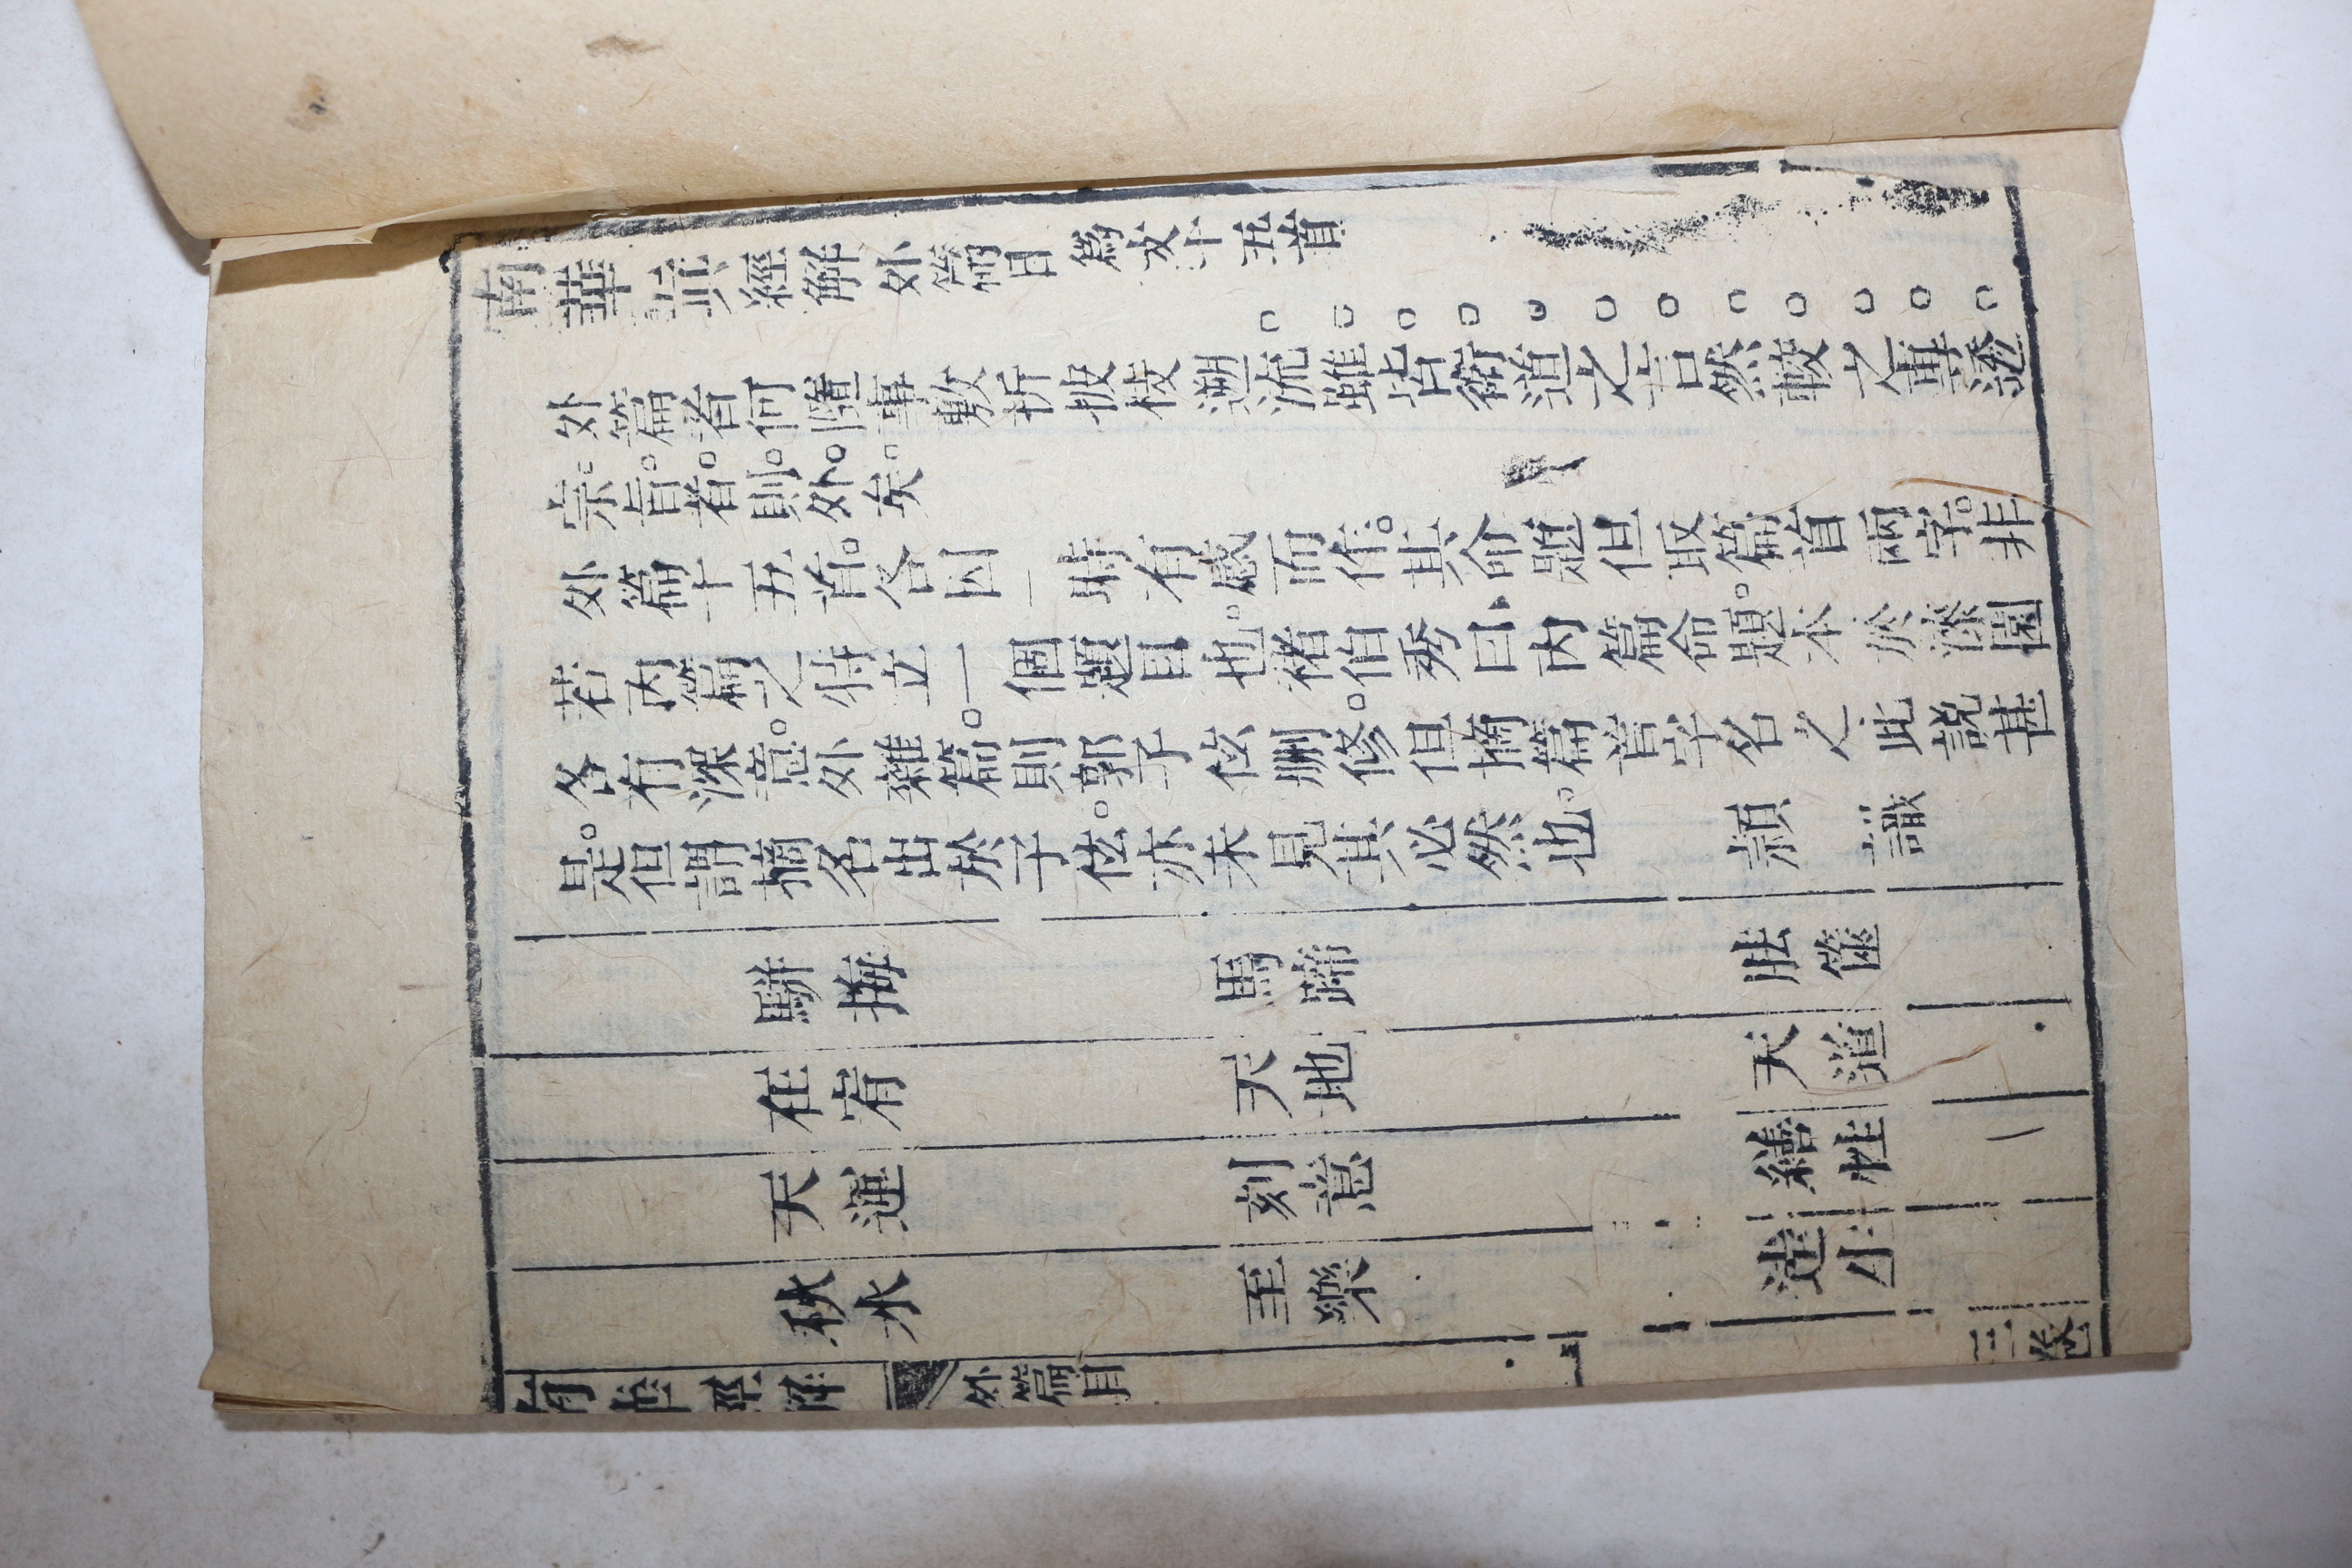 南華眞經解外篇目 爲文十五首
外篇者何隨事敷折披枝遡流雖皆衛道之言然較之專透
宗旨者則外矣
外篇十五首。各因一時有感而作。其命題但取篇首兩字。非
若內篇之特立一個題目也。褚伯秀曰內篇命題。本於漆園
各有深意。外雜篇。則郭子伭刪修。但摘篇首字名之此說甚
是。但謂摘名出於子伭。亦未見其必然也。 頴 識
騈拇 馬蹄 胠篋
在宥 天地 天道
天運 刻意 繕性
秋水 至樂 達生
南華經解 外篇目 三卷